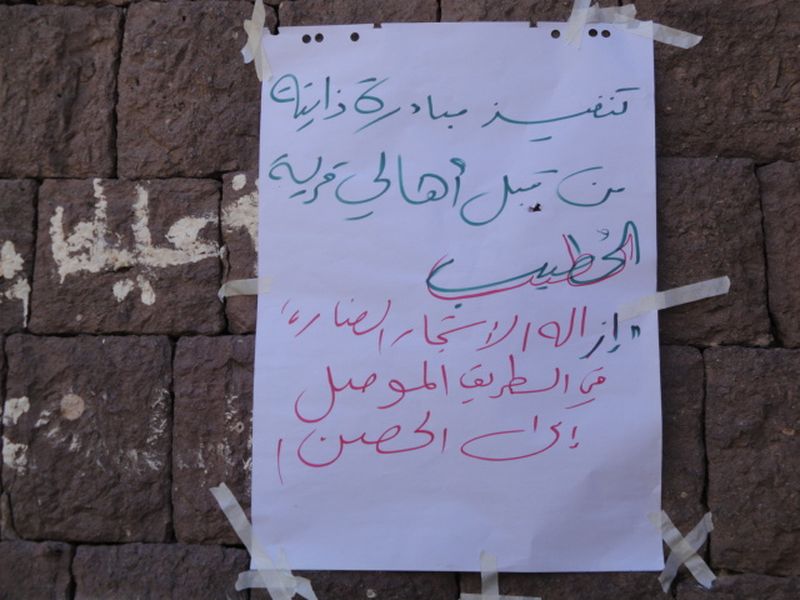 تنفيذ مبادرة ذاتية
من قبل أهالي قرية
الخُطيب
"إزاله الاشجار الضاره"
في الطريق الموصل
إلى الحصن